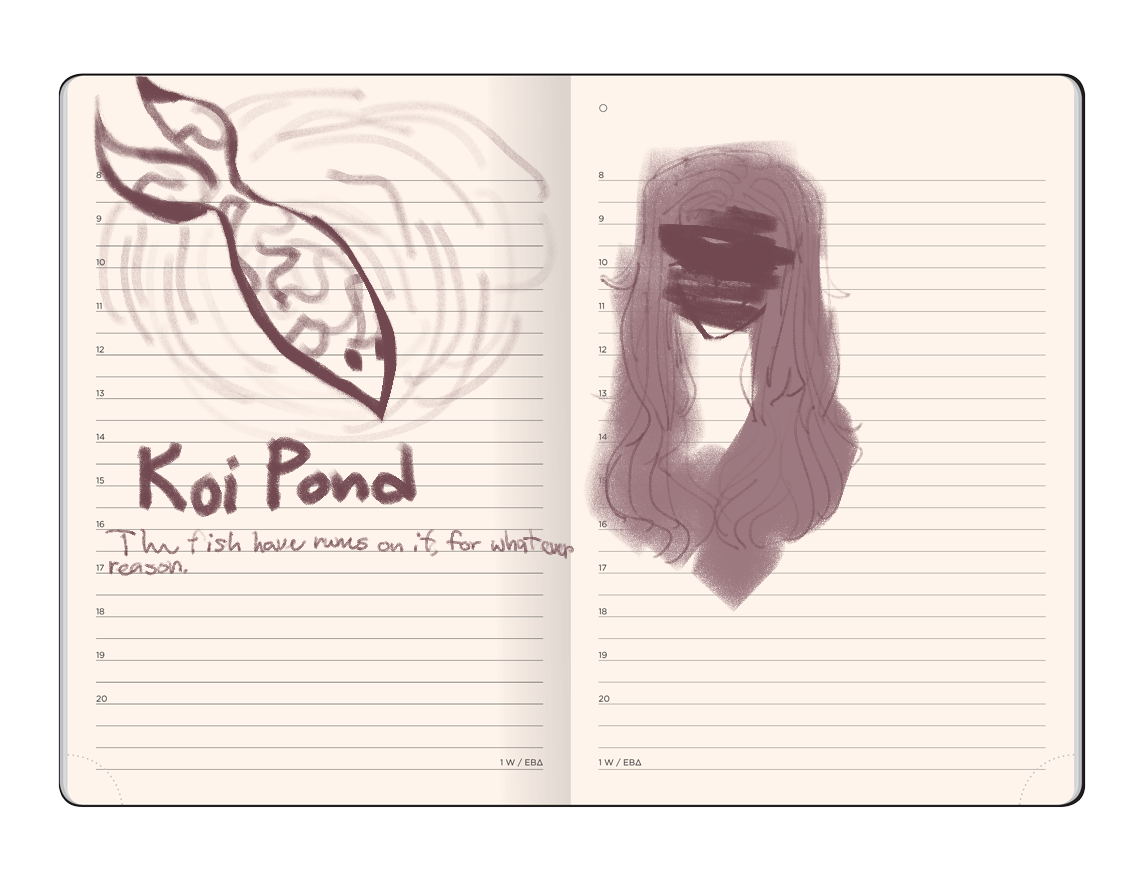 8
9
10
11
12
13
14
Koi Pond
15
16
The fish have runes on it, for whatever
17 reason.
18
19
20
1 W / EBΔ
8
9
10
11
12
13
14
15
16
17
18
19
20
1 W / EBΔ